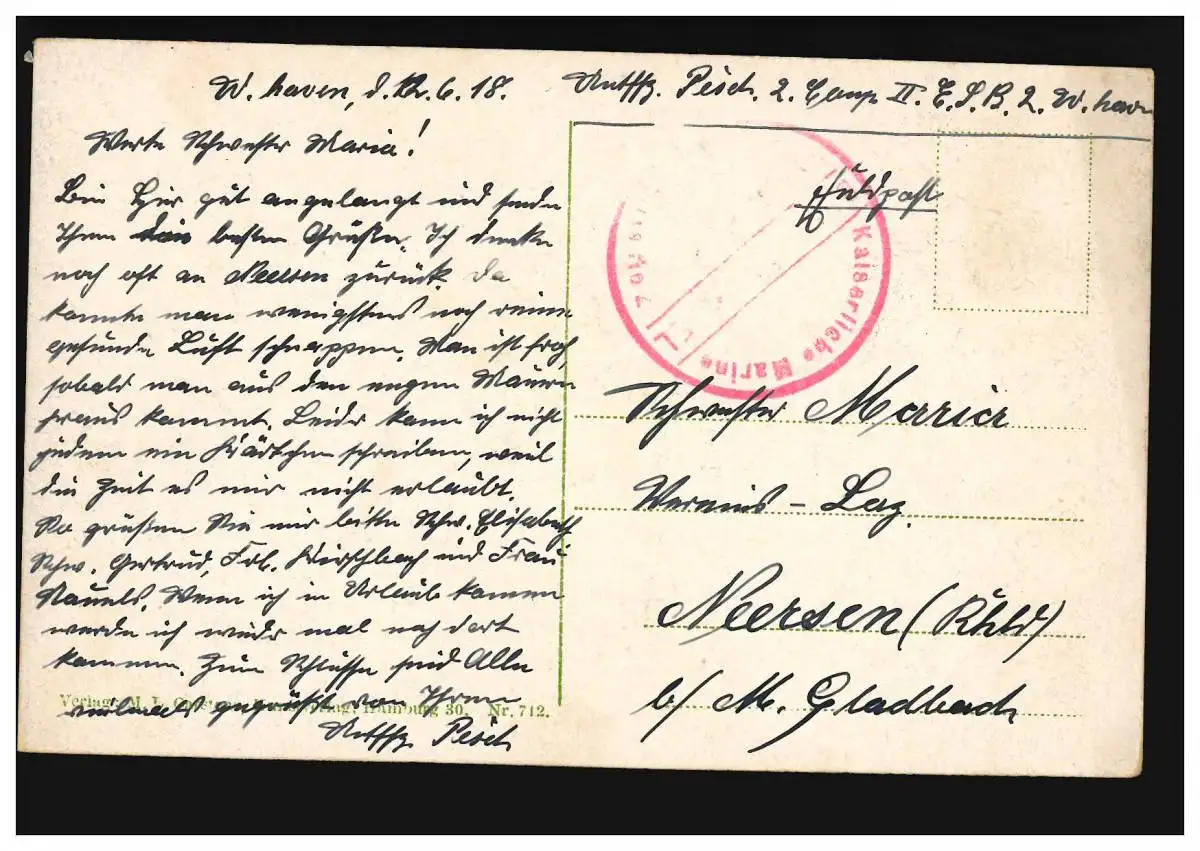 W. haven, d. 12.6.18.
Werte Schwester Maria!
Bin hier gut angelangt und sende
Ihnen die besten Grüße. Ich denke
noch oft an Neersen zurück. Da
konnte man wenigstens noch reine
gesunde Luft schnappen. Man ist froh,
sobald man aus den engen Mauern
heraus kommt. Leider kann ich nicht
jedem ein Kärtchen schreiben, weil
die Zeit es mir nicht erlaubt.
So grüßen Sie mir bitte Schw. Elisabeth
Schw. Gertrud, Frl. Kirschbach und Frau
Nauels. Wenn ich in Urlaub komme
werde ich wieder mal nach dort
kommen. Zum Schlusse seid Alle
vielmals gegrüßt von Ihrem
Untffz. Pesch
Verlag: M. L. Hamburg 30. Nr. 712.
Untffz. Pesch. 2. Comp II. E. S. B. 2. W. haven
Feldpost
Kaiserliche Marine
Schwester Maria
Vereins-Laz.
Neersen (Rhld)
b/ M. Gladbach